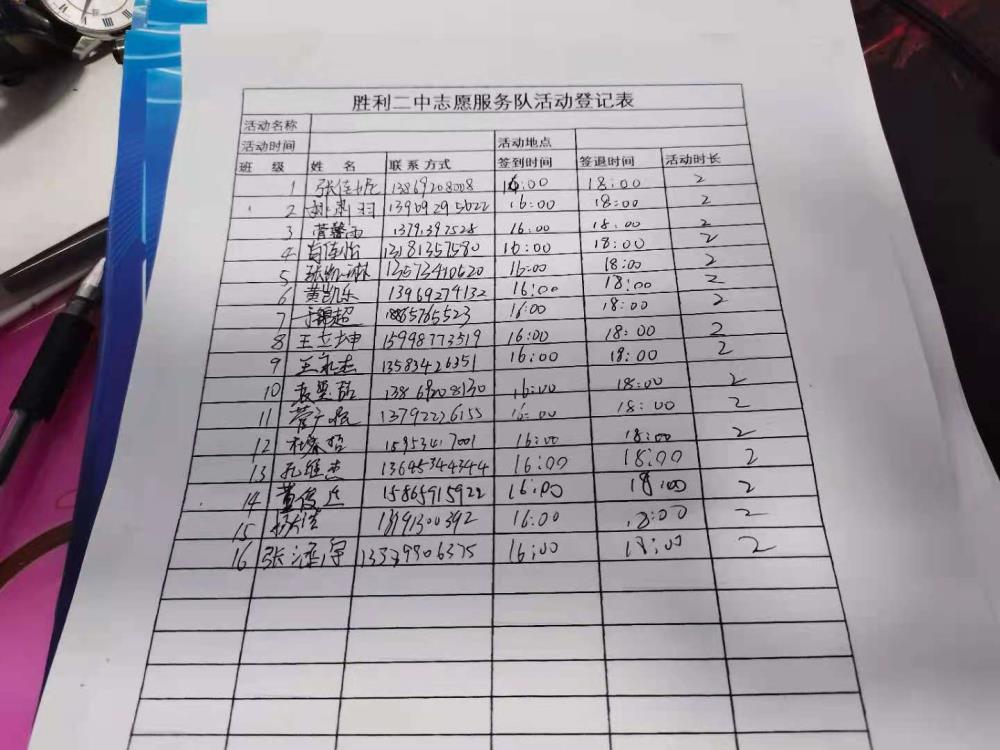 胜利二中志愿服务队活动登记表
活动名称
活动时间 活动地点
班 级 姓 名 联系方式 签到时间 签退时间 活动时长
1 张佳妮 13869208008 16:00 18:00 2
2 13969295022 16:00 18:00 2
3 1379397528 16:00 18:00 2
4 13181357580 16:00 18:00 2
5 张凯琳 13573410620 16:00 18:00 2
6 黄凯乐 13969274132 16:00 18:00 2
7 16:00 18:00 2
8 王立坤 15998773519 16:00 18:00 2
9 王永杰 13583426351 16:00 18:00 2
10 13869208130 16:00 18:00 2
11 13792226155 16:00 18:00 2
12 1595347001 16:00 18:00 2
13 孔维杰 13645344344 16:00 18:00 2
14 15865915922 16:00 18:00 2
15 16:00 18:00 2
16 张涵宇 16:00 18:00 2